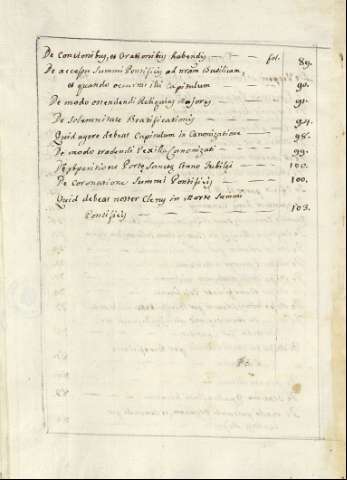 De Concionibus, et Orationibus habendis — — fol. 89.
De accessu Summi Pontificis ad nram Basilicam,
et quando occurrit illi Capitulum 90.
De modo ostendendi Reliquias Majores — 91.
De Solemnitate Beatificationis — — 94.
Quid agere debeat Capitulum in Canonizatione — — 98.
De modo tradendi Vexillu Canonizati — — 99.
Porte Sancte Anno Jubilei — — 100.
De Coronatione Summi Pontificis — — 100.
Quid debeat noster Clerus in Morte Summi
Pontificis — — — — 103.